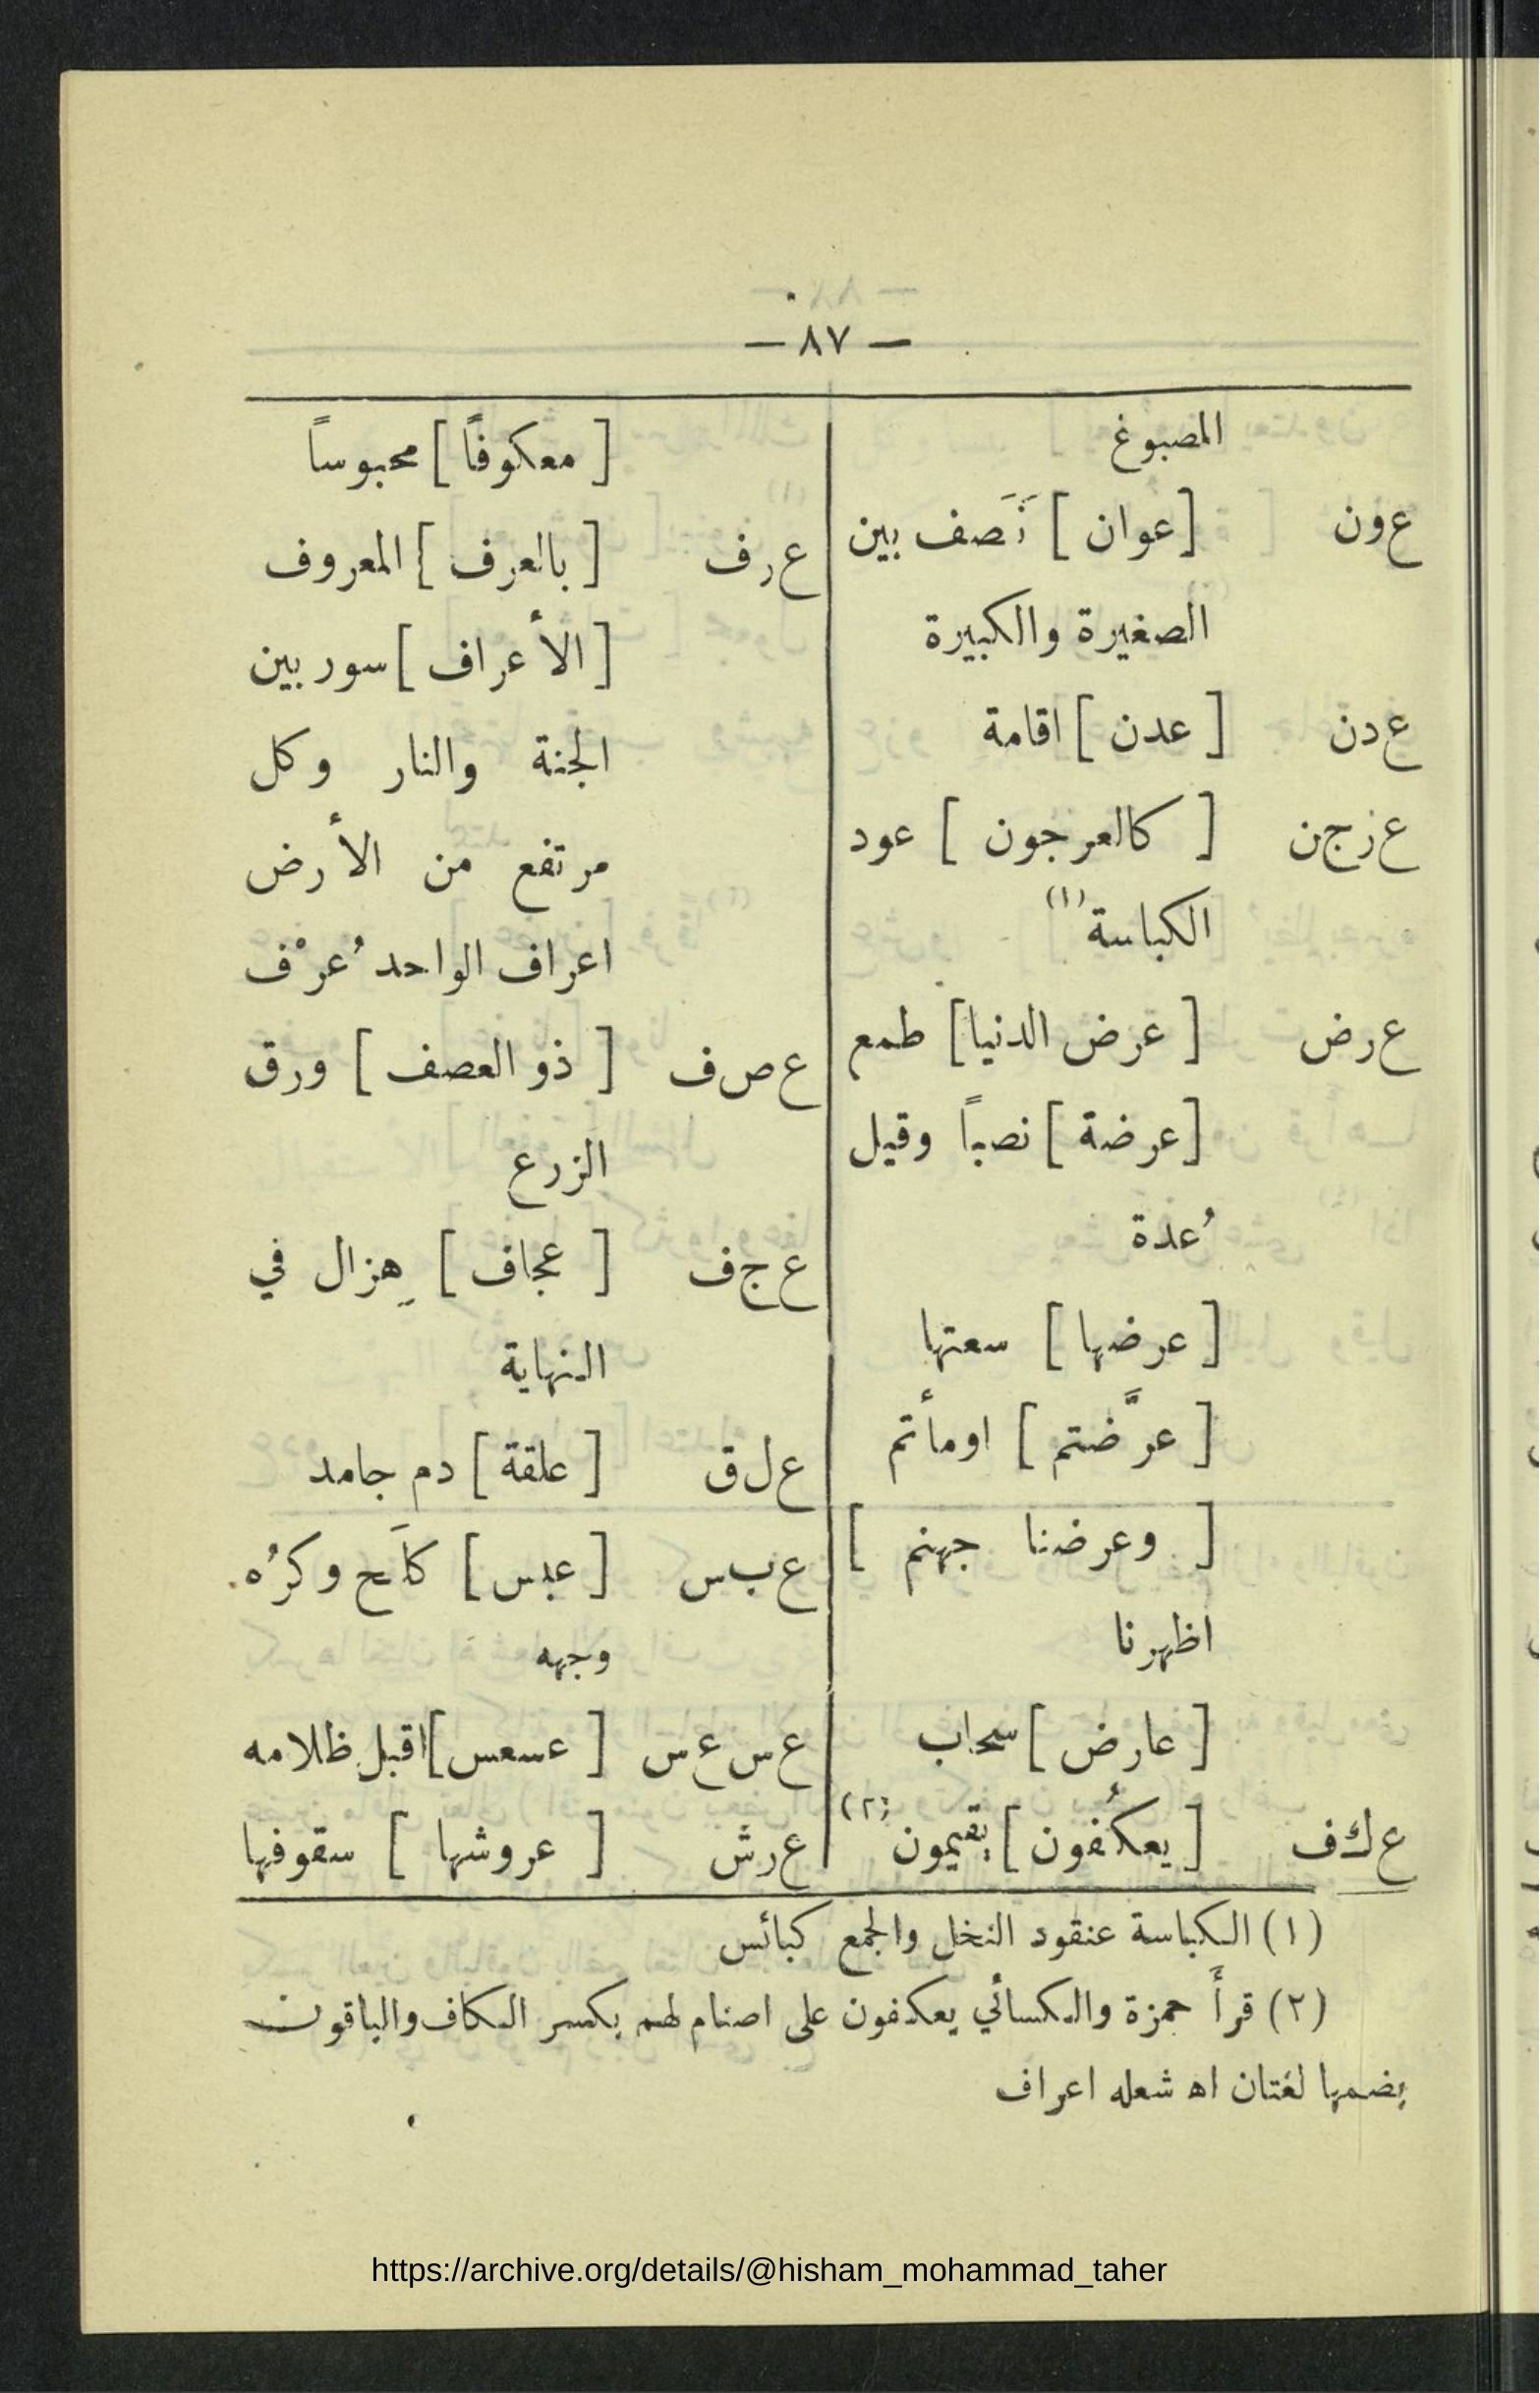 — ٨٧ —
المصبوغ
ع ون [عوان] نَصَف بين
الصغيرة والكبيرة
ع دن [عدن] اقامة
ع ز ج ن [كالعرجون] عود
الكباسة (١)
ع رض [عرض الدنيا] طمع
[عرضة] نصباً وقيل
عُدة
[عرضها] سعتها
[عرَّضتم] اومأتم
[وعرضنا جهنم]
اظهرنا
[عارض] سحاب
ع ك ف [يعكُفون] يقيمون (٢)
[معكوفاً] محبوساً
ع ر ف [بالعرف] المعروف
[الأعراف] سور بين
الجنة والنار وكل
مرتفع من الأرض
اعراف الواحد عُرْف
ع ص ف [ذو العصف] ورق
الزرع
ع ج ف [عجاف] هِزال في
النهاية
ع ل ق [علقة] دم جامد
ع ب س [عبس] كلَح وكرُه
وجهه
ع س ع س [عسعس] اقبل ظلامه
ع ر ش [عروشها] سقوفها
(١) الكباسة عنقود النخل والجمع كبائس
(٢) قرأَ حمزة والكسائي يعكفون على اصنام لهم بكسر الكاف والباقون
بضمها لغتان اه شعله اعراف
https://archive.org/details/@hisham_mohammad_taher